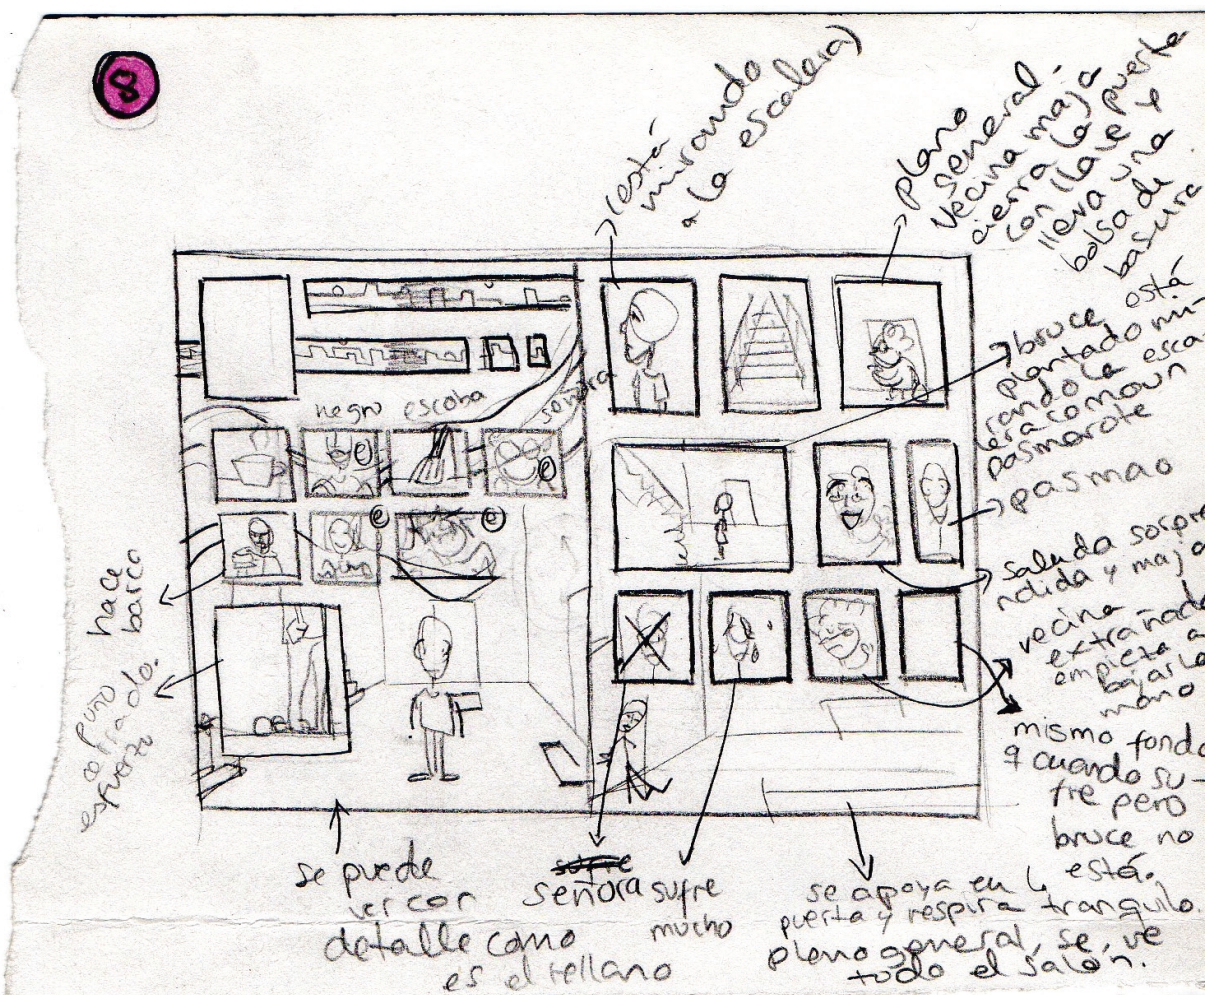 8
(está
mirando
a la escalera)
plano
general.
vecina maja
cierra la puerta
con llave y
lleva una
bolsa de
basura
bruce está
plantado mi-
rando la esca-
lera como un
pasmarote
pasmao
saluda sorpre
ndida y maja
vecina
extrañada
empieza a
bajar la
mano
mismo fondo
q cuando su-
fre pero
bruce no
está.
negro escoba señora
e
e
e
e
hace
barco
puño
cerrado.
esfuerzo
se puede
ver con
detalle como
es el rellano
sufre
señora
sufre
mucho
se apoya en la
puerta y respira tranquilo.
plano general, se ve
todo el salón.